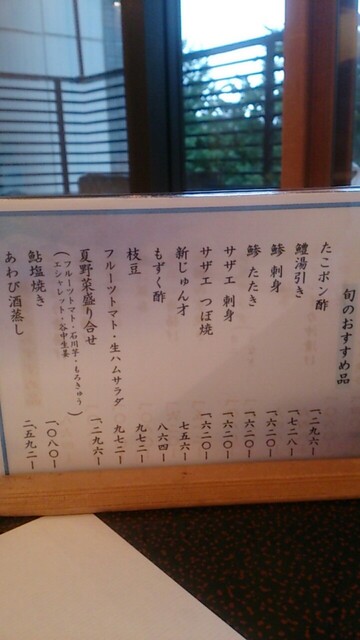 旬のおすすめ品
たこポン酢 一、二九六ー
鱧湯引き 一、七二八ー
鯵 刺身 一、六二〇ー
鯵 たたき 一、六二〇ー
サザエ 刺身 一、六二〇ー
サザエ つぼ焼 一、六二〇ー
新じゅん才 七五六ー
もずく酢 八六四ー
枝豆 九七二ー
フルーツトマト・生ハムサラダ 九七二ー
夏野菜盛り合せ 一、二九六ー
(フルーツトマト・石川芋・もろきゅう
エシャレット・谷中生姜)
鮎塩焼き 一、〇八〇ー
あわび酒蒸し 二、五九二ー